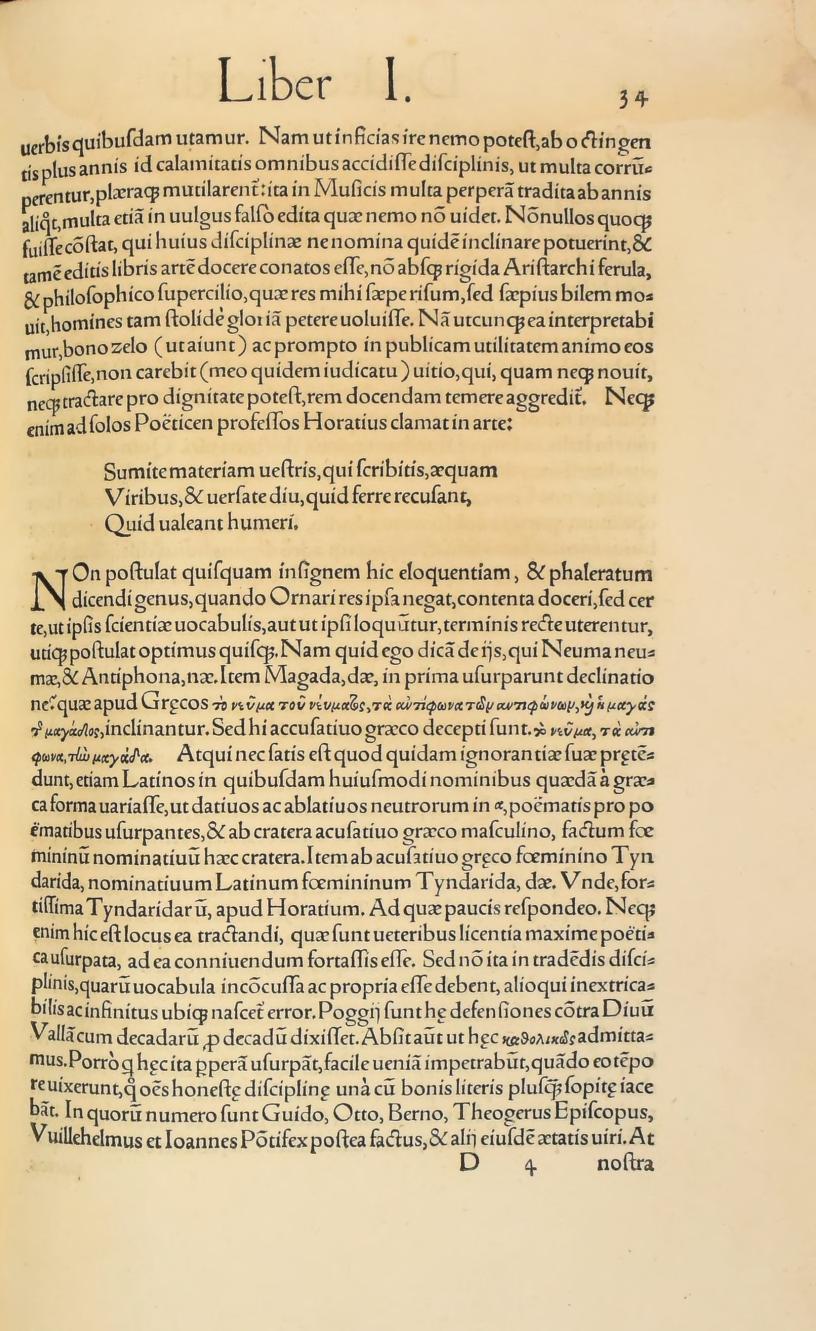 Liber I. 34
uerbis quibuſdam utamur. Nam ut inficias ire nemo poteſt, ab octingen
tis plus annis id calamitatis omnibus accidiſſe diſciplinis, ut multa corrū-
perentur, plæraqꝫ mutilarent᷑: ita in Muſicis multa perperā tradita ab annis
aliqͦt, multa etiā in uulgus falſo edita quæ nemo nō uidet. Nōnullos quoqꝫ
fuiſſe cōſtat, qui huius diſciplinæ ne nomina quidē inclinare potuerint, &
tamē editis libris artē docere conatos eſſe, nō abſqꝫ rigida Ariſtarchi ferula,
& philoſophico ſupercilio, quæ res mihi ſæpe riſum, ſed ſæpius bilem mo-
uit, homines tam ſtolidè gloriā petere uoluiſſe. Nā utcunqꝫ ea interpretabi
mur, bono zelo (ut aiunt) ac prompto in publicam utilitatem animo eos
ſcripſiſſe, non carebit (meo quidem iudicatu) uitio, qui, quam neqꝫ nouit,
neqꝫ tractare pro dignitate poteſt, rem docendam temere aggredit᷑. Neqꝫ
enim ad ſolos Poëticen profeſſos Horatius clamat in arte:
Sumite materiam ueſtris, qui ſcribitis, æquam
Viribus, & uerſate diu, quid ferre recuſant,
Quid ualeant humeri.
NOn poſtulat quiſquam inſignem hic eloquentiam, & phaleratum
dicendi genus, quando Ornari res ipſa negat, contenta doceri, ſed cer
te, ut ipſis ſcientiæ uocabulis, aut ut ipſi loquūtur, terminis recte uterentur,
utiqꝫ poſtulat optimus quiſqꝫ. Nam quid ego dicā de ijs, qui Neuma neu-
mæ, & Antiphona, næ. Item Magada, dæ, in prima uſurparunt declinatio
ne? quæ apud Gręcos τὸ νεῦμα τοῦ νεύματος, τὰ ἀντίφωνα τῶν ἀντιφώνων, καὶ ἡ μαγάς
τῆς μαγάδος, inclinantur. Sed hi accuſatiuo græco decepti ſunt. τὸ νεῦμα, τὰ ἀντί
φωνα, τὴν μαγάδα. Atqui nec ſatis eſt quod quidam ignorantiæ ſuæ prętē-
dunt, etiam Latinos in quibuſdam huiuſmodi nominibus quædā à græ-
ca forma uariaſſe, ut datiuos ac ablatiuos neutrorum in α, poëmatis pro po
ëmatibus uſurpantes, & ab cratera acuſatiuo græco maſculino, factum fœ
mininū nominatiuū hæc cratera. Item ab acuſatiuo gręco fœminino Tyn
darida, nominatiuum Latinum fœmininum Tyndarida, dæ. Vnde, for-
tiſſima Tyndaridarū, apud Horatium. Ad quæ paucis reſpondeo. Neqꝫ
enim hic eſt locus ea tractandi, quæ ſunt ueteribus licentia maxime poëti-
ca uſurpata, ad ea conniuendum fortaſſis eſſe. Sed nō ita in tradēdis diſci-
plinis, quarū uocabula incōcuſſa ac propria eſſe debent, alioqui inextrica-
bilis ac infinitus ubiqꝫ naſcet᷑ error. Poggij ſunt hę defenſiones cōtra Diuū
Vallā cum decadarū ꝓ decadū dixiſſet. Abſit aūt ut hęc καθολικῶς admitta-
mus. Porrò q̄ hęc ita ꝑperā uſurpāt, facile ueniā impetrabūt, quādo eo tēpo
re uixerunt, qͦ oēs honeſtę diſciplinę unà cū bonis literis pluſqꝫ̄ ſopitę iace
bāt. In quorū numero ſunt Guido, Otto, Berno, Theogerus Epiſcopus,
Vuillehelmus et Ioannes Pōtifex poſtea factus, & alij eiuſdē ætatis uiri. At
D 4 noſtra